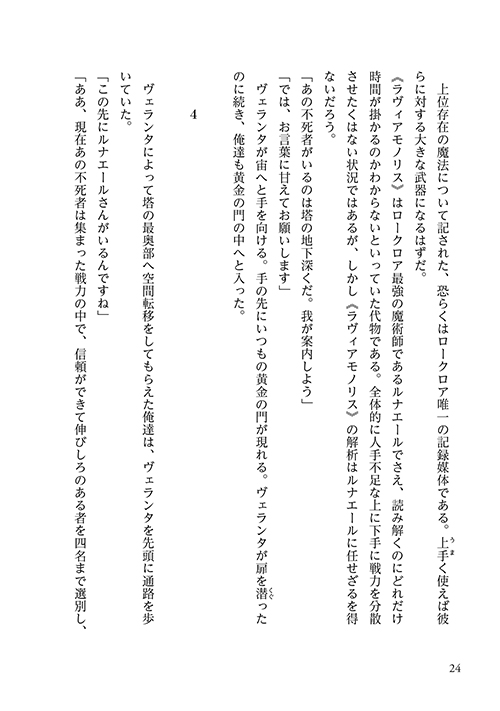 上位存在の魔法について記された、恐らくはロークロア唯一の記録媒体である。上手く使えば彼
うま
らに対する大きな武器になるはずだ。
《ラヴィアモノリス》はロークロア最強の魔術師であるルナエールでさえ、読み解くのにどれだけ
時間が掛かるのかわからないといっていた代物である。全体的に人手不足な上に下手に戦力を分散
させたくはない状況ではあるが、しかし《ラヴィアモノリス》の解析はルナエールに任せざるを得
ないだろう。
「あの不死者がいるのは塔の地下深くだ。我が案内しよう」
「では、お言葉に甘えてお願いします」
ヴェランタが宙へと手を向ける。手の先にいつもの黄金の門が現れる。ヴェランタが扉を潜った
くぐ
のに続き、俺達も黄金の門の中へと入った。
4
ヴェランタによって塔の最奥部へ空間転移をしてもらえた俺達は、ヴェランタを先頭に通路を歩
いていた。
「この先にルナエールさんがいるんですね」
「ああ、現在あの不死者は集まった戦力の中で、信頼ができて伸びしろのある者を四名まで選別し、
24